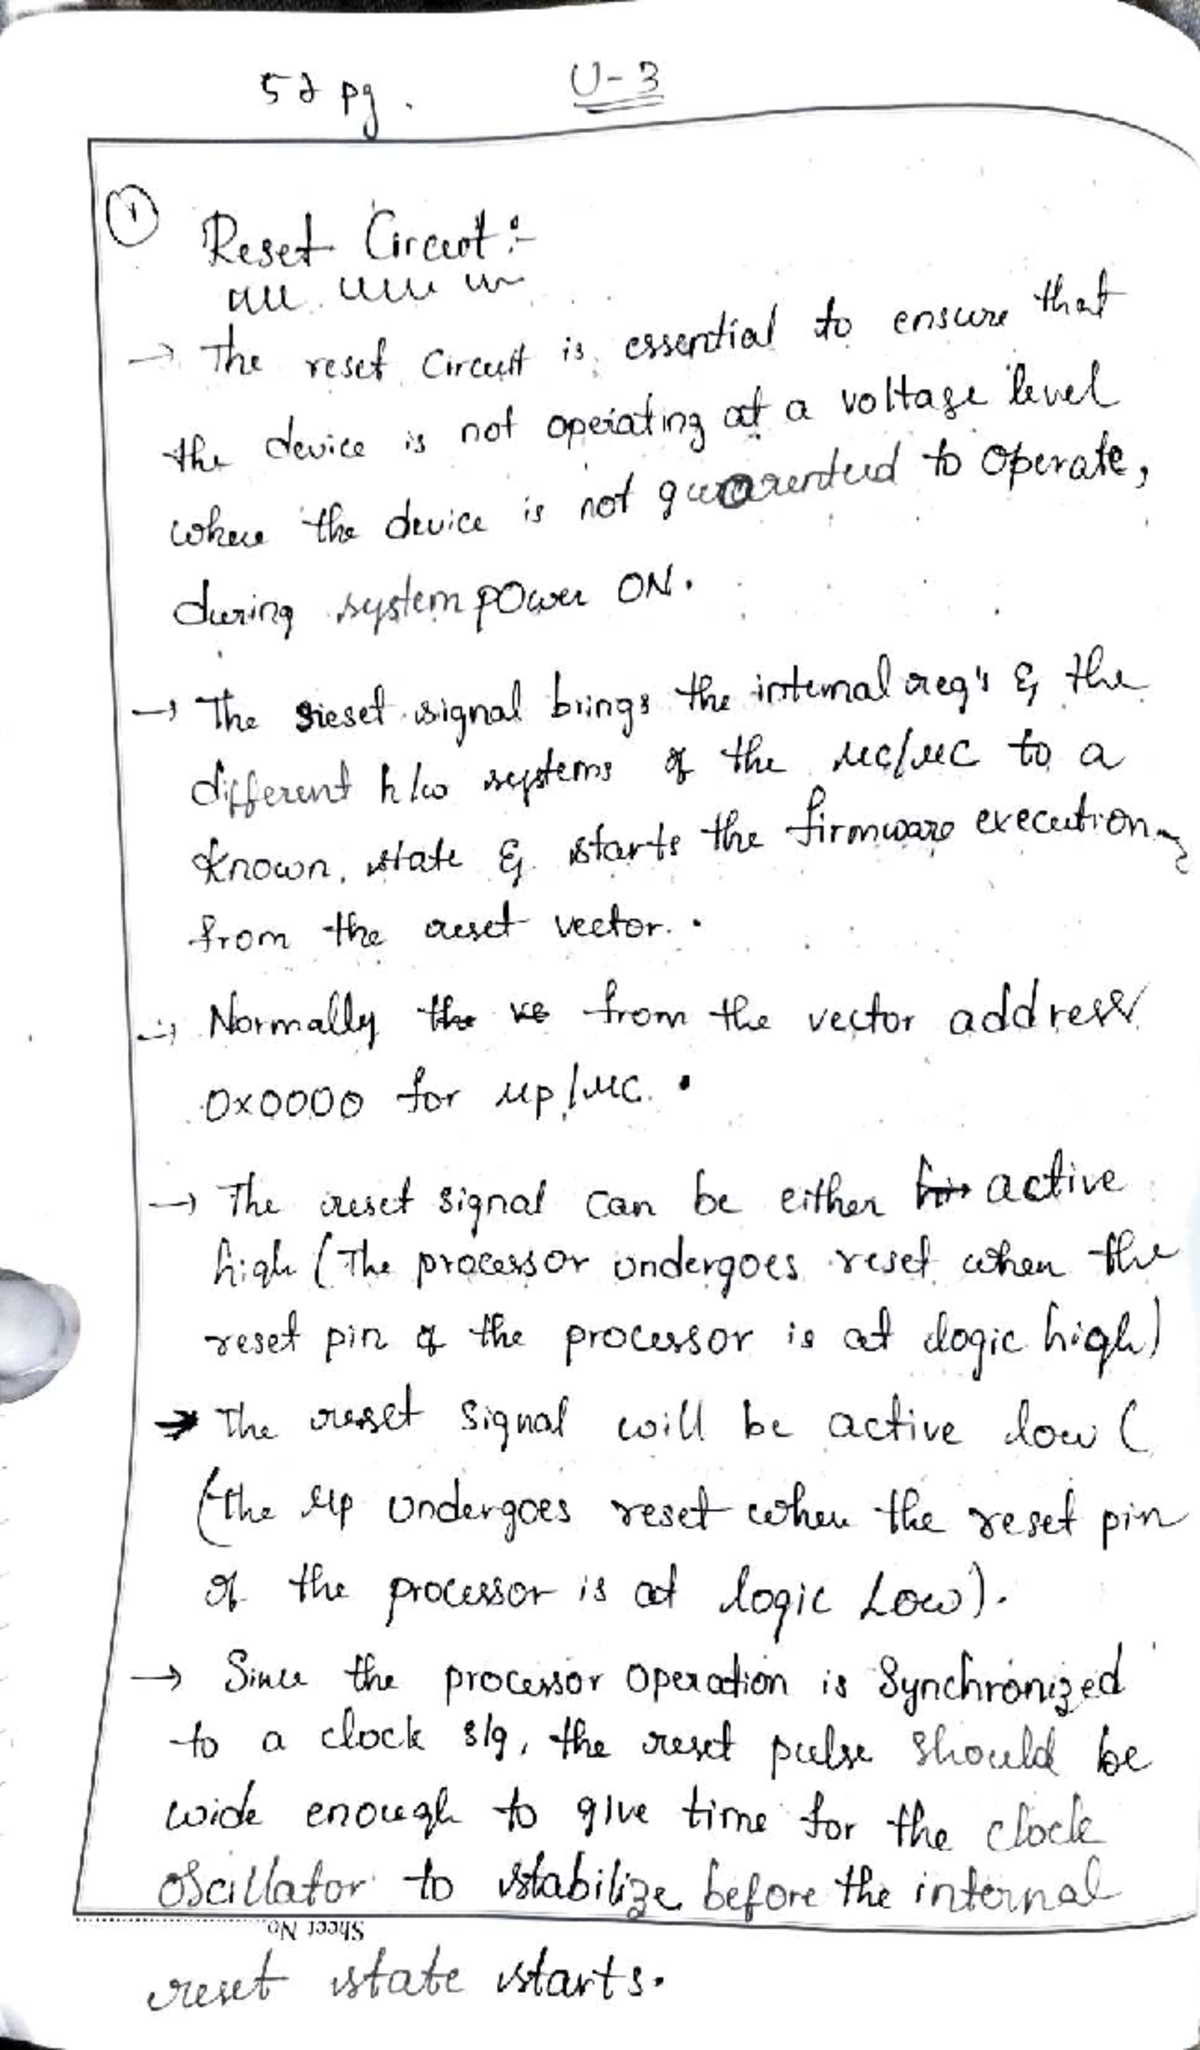 52 pg.
U-3
① Reset Circuit :-
→ The reset Circuit is essential to ensure that
the device is not operating at a voltage level
where the device is not guarenteed to operate,
during system power ON.
→ The reset signal brings the internal reg's & the
different h/w systems of the μc/μc to a
known state & starts the firmware execution
from the reset vector.
→ Normally the ve from the vector address
0x0000 for μp/μc.
→ The reset signal can be either active
high (The processor undergoes reset when the
reset pin of the processor is at logic high)
→ The reset signal will be active low (
(the μp undergoes reset when the reset pin
of the processor is at logic Low).
→ Since the processor operation is Synchronized
to a clock s/g, the reset pulse should be
wide enough to give time for the clock
oscillator to stabilize before the internal
Sheet No
reset state starts.